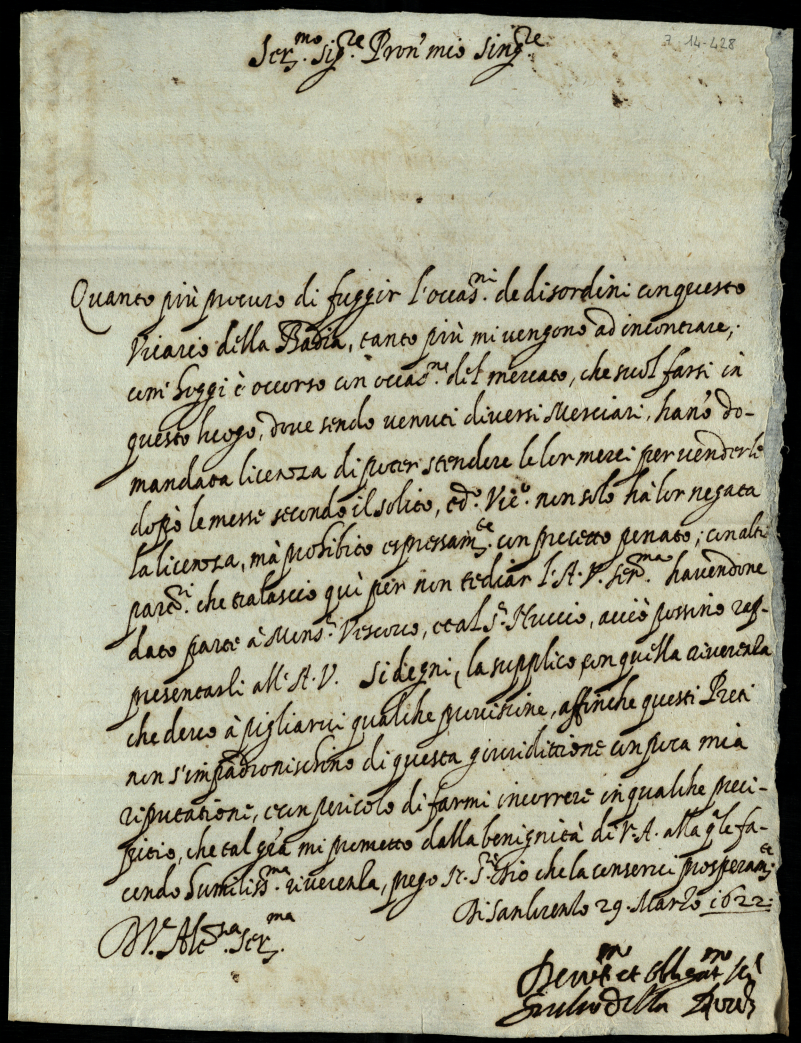 7. 14-428
Ser.mo Sig.re Pron' mio Sing.re
Quanto più procuro di fuggir l'occas.ni de disordini con questo
Vicario della Badia, tanto più mi vengono ad incontrare,
com' hoggi è occorso con occas.ne del mercato, che suol farsi in
questo luogo, dove sendo venuti diversi Merciari, han'o do-
mandata licenza di poter stendere le lor merci per venderle
dopò le messe secondo il solito, e d.o Vic.o non solo hà lor negata
la licenza, mà prohibito espressam.te con precetto penato; con altri
part.ri che tralascio quì per non tediar l'A.V. Ser.ma havendone
dato parte à Mons.r Vescovo, et al S.r Nuccio, acciò possino rap-
presentarli all'A.V. Si degni, la supplico con quella riverenza
che devo à pigliarvi qualche provisione, affinche questi Preti
non s'impadronischino di questa giuridittione con poca mia
riputatione, e con pericolo di farmi incorrere in qualche preci-
pitio, che tal gra mi prometto dalla benignità di V.A. alla q.le fa-
cendo humiliss.ma riverenza, prego N. S.r Dio che la conservi prosperam.te
Di San Lorenzo 29. Marzo 1622.
D V. Alt.za Ser.ma
Devot.mo et obligat.mo se.r
Giulio della Rovere